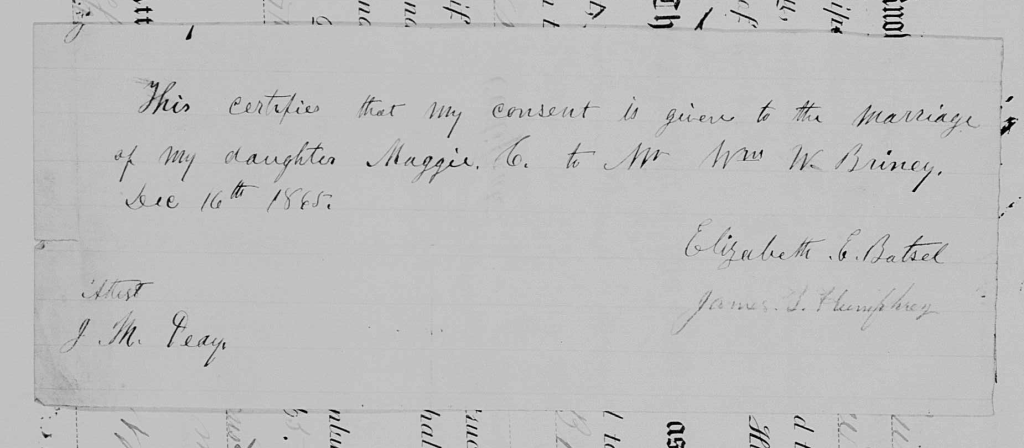 This certifies that my consent is given to the marriage
of my daughter Maggie. C. to Mr Wm W. Briney.
Dec 16th 1865.
Elizabeth. E. Batsel
James. S. Humphrey
Attest
J M. Peay.